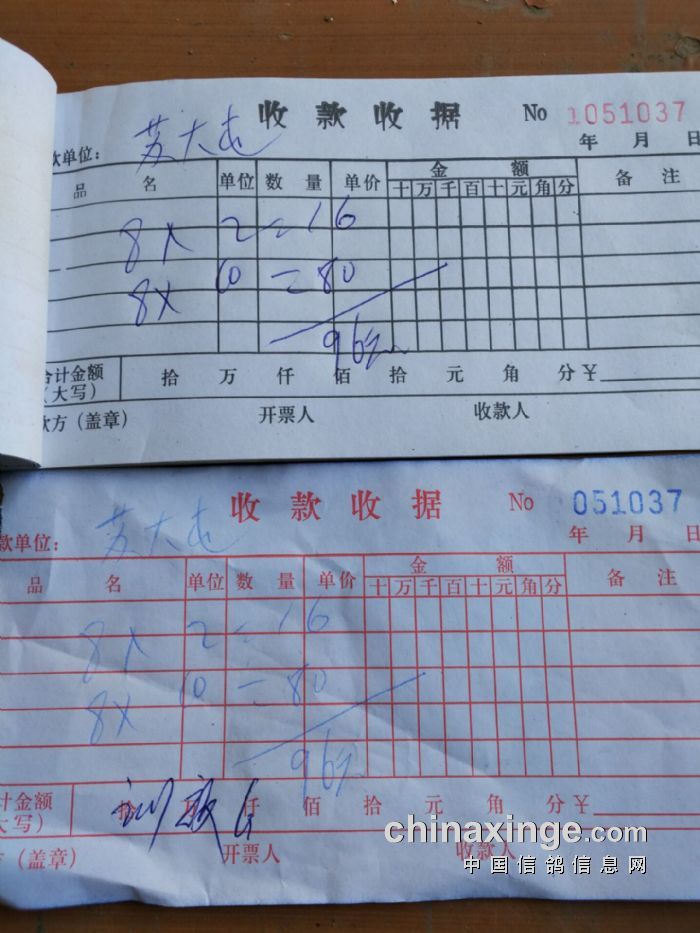 收款收据 No 1051037
款单位: 苏大屯 年 月 日
品 名 单位 数 量 单价 金 额 备 注
十 万 千 百 十 元 角 分
8X 2 = 16
8X 10 = 80
96元
合计金额
(大写) 拾 万 仟 佰 拾 元 角 分 ¥
款方(盖章) 开票人 收款人
收款收据 No 051037
款单位: 苏大屯 年 月 日
品 名 单位 数 量 单价 金 额 备 注
十 万 千 百 十 元 角 分
8X 2 = 16
8X 10 = 80
96元
计金额
大写) 拾 万 仟 佰 拾 元 角 分 ¥
方(盖章) 开票人 收款人
chinaxinge.com
中国信鸽信息网